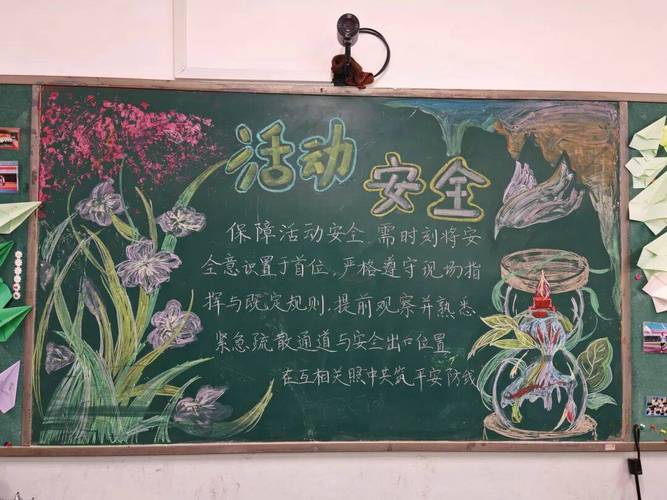 活动
安全
保障活动安全 需时刻将安
全意识置于首位，严格遵守现场指
挥与既定规则，提前观察并熟悉
紧急疏散通道与安全出口位置
在互相关照中共筑平安防线